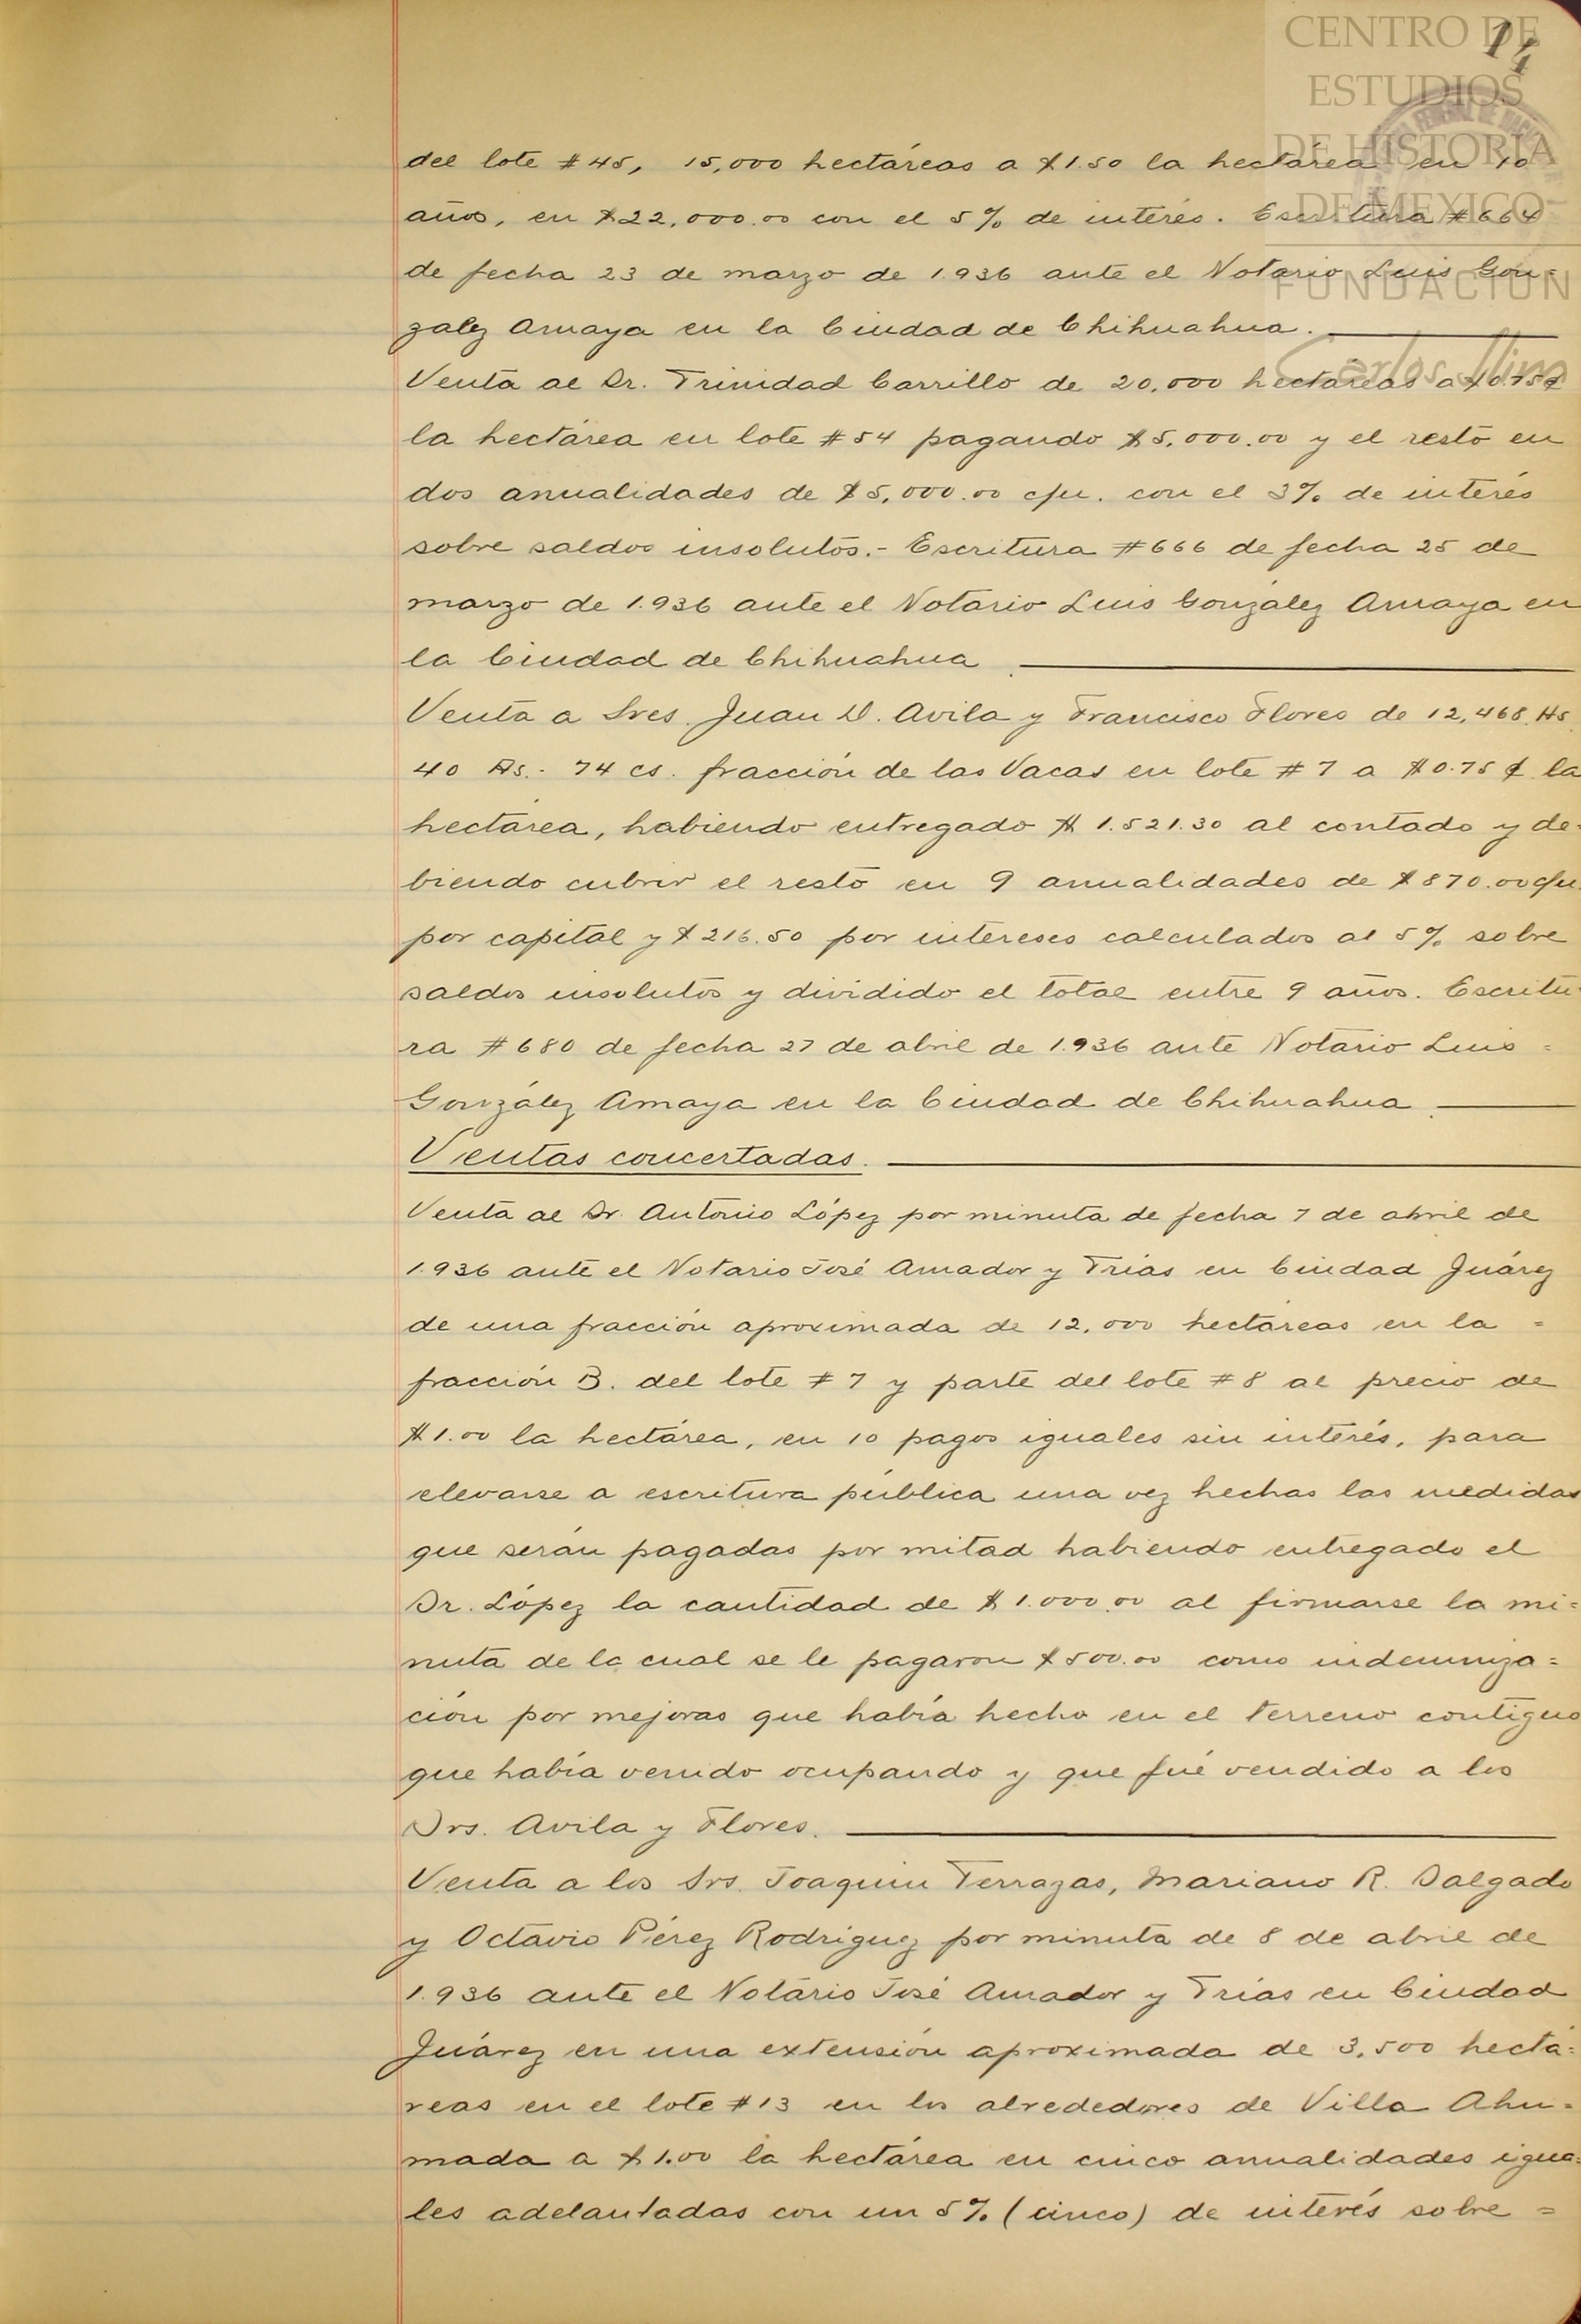 14
CENTRO DE
ESTUDIOS
DE HISTORIA
DE MEXICO
FUNDACION
Carlos Slim
del lote #45, 15,000 hectáreas a $1.50 la hectárea en 10
años, en $22,000.00 con el 5% de interés. Escritura #664
de fecha 23 de marzo de 1.936 ante el Notario Luis Gon=
zalez Amaya en la Ciudad de Chihuahua.
Venta al Sr. Trinidad Carrillo de 20,000 hectáreas a $0.75¢
la hectárea en lote #54 pagando $5,000.00 y el resto en
dos anualidades de $5,000.00 c/u. con el 3% de interés
sobre saldos insolutos.- Escritura #666 de fecha 25 de
marzo de 1.936 ante el Notario Luis González Amaya en
la Ciudad de Chihuahua.
Venta a Sres. Juan D. Avila y Francisco Flores de 12,468 Hs.
40 As.- 74 cs. fracción de las Vacas en lote #7 a $0.75 ¢ la
hectárea, habiendo entregado $ 1.521.30 al contado y de=
biendo cubrir el resto en 9 anualidades de $870.00 c/u.
por capital y $216.50 por intereses calculados al 5% sobre
saldos insolutos y dividido el total entre 9 años. Escritu=
ra #680 de fecha 27 de abril de 1.936 ante Notario Luis =
González Amaya en la Ciudad de Chihuahua.
Ventas concertadas.
Venta al Sr. Antonio López por minuta de fecha 7 de abril de
1.936 ante el Notario José Amador y Trías en Ciudad Juárez
de una fracción aproximada de 12,000 hectáreas en la =
fracción B. del lote #7 y parte del lote #8 al precio de
$1.00 la hectárea, en 10 pagos iguales sin interés, para
elevarse a escritura pública una vez hechas las medidas
que serán pagadas por mitad habiendo entregado el
Sr. López la cantidad de $ 1.000.00 al firmarse la mi=
nuta de la cual se le pagaron $500.00 como indemniza=
ción por mejoras que había hecho en el terreno contiguo
que había venido ocupando y que fué vendido a los
Srs. Avila y Flores.
Venta a los Srs. Joaquin Terrazas, Mariano R. Salgado
y Octavio Pérez Rodríguez por minuta de 8 de abril de
1.936 ante el Notario José Amador y Trías en Ciudad
Juárez en una extensión aproximada de 3,500 hectá=
reas en el lote #13 en los alrededores de Villa Ahu=
mada a $1.00 la hectárea en cinco anualidades igua=
les adelantadas con un 5% (cinco) de interés sobre =